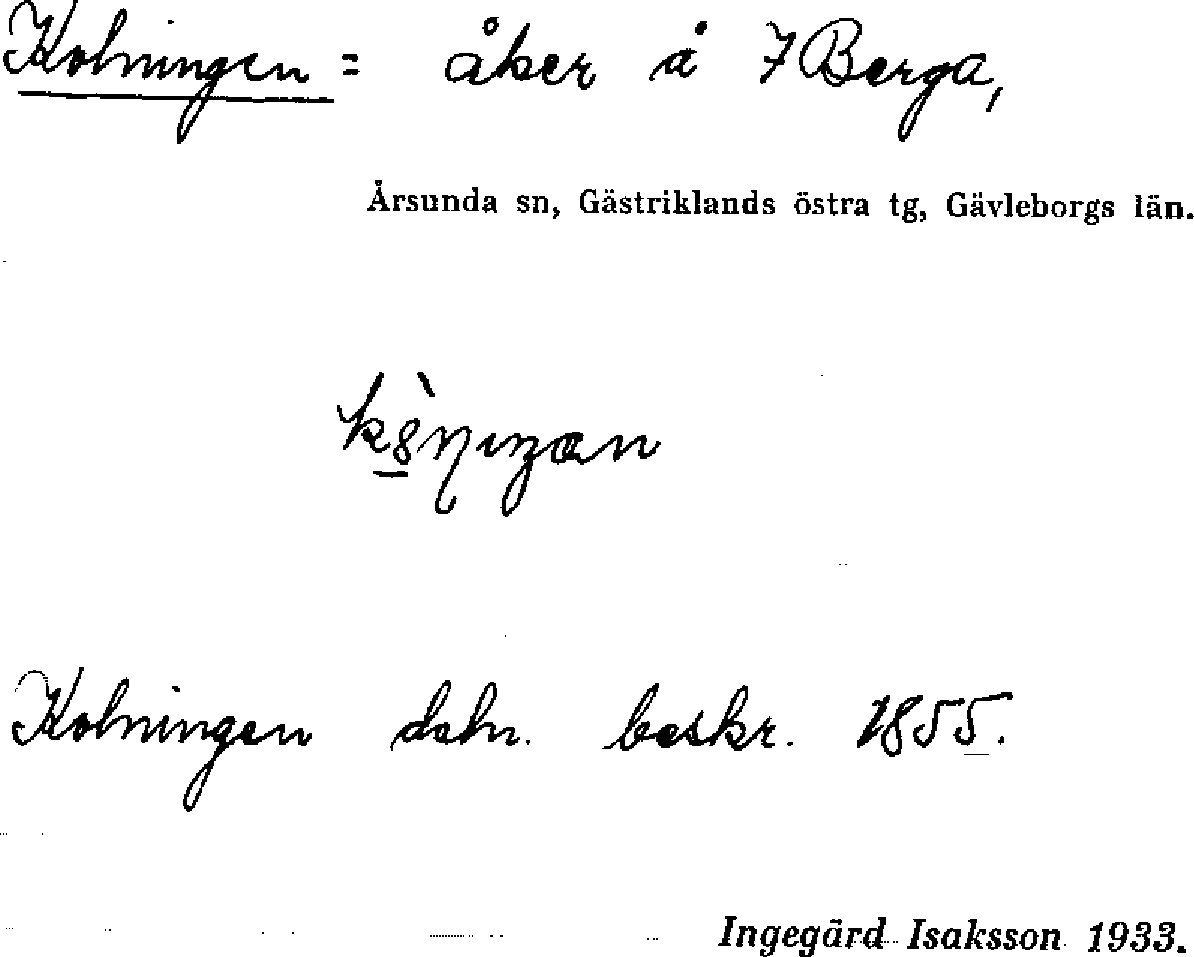 Kolningen = åker å 7 Berga,
Årsunda sn, Gästriklands östra tg, Gävleborgs län.
Kolningen dsbn. beskr. 1855.
Ingegärd Isaksson 1933.